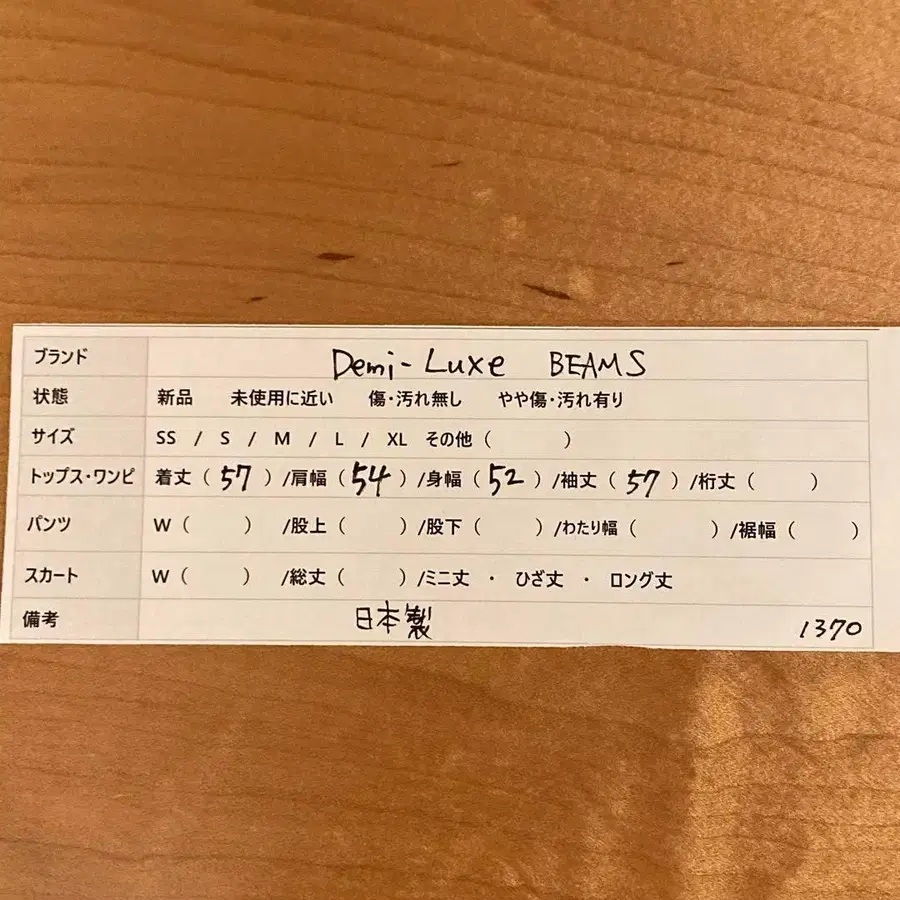 ブランド Demi-Luxe BEAMS
状態 新品 未使用に近い 傷・汚れ無し やや傷・汚れ有り
サイズ SS / S / M / L / XL その他 ( )
トップス・ワンピ 着丈 ( 57 ) /肩幅 ( 54 ) /身幅 ( 52 ) /袖丈 ( 57 ) /裄丈 ( )
パンツ W ( ) /股上 ( ) /股下 ( ) /わたり幅 ( ) /裾幅 ( )
スカート W ( ) /総丈 ( ) /ミニ丈 ・ ひざ丈 ・ ロング丈
備考 日本製 1370